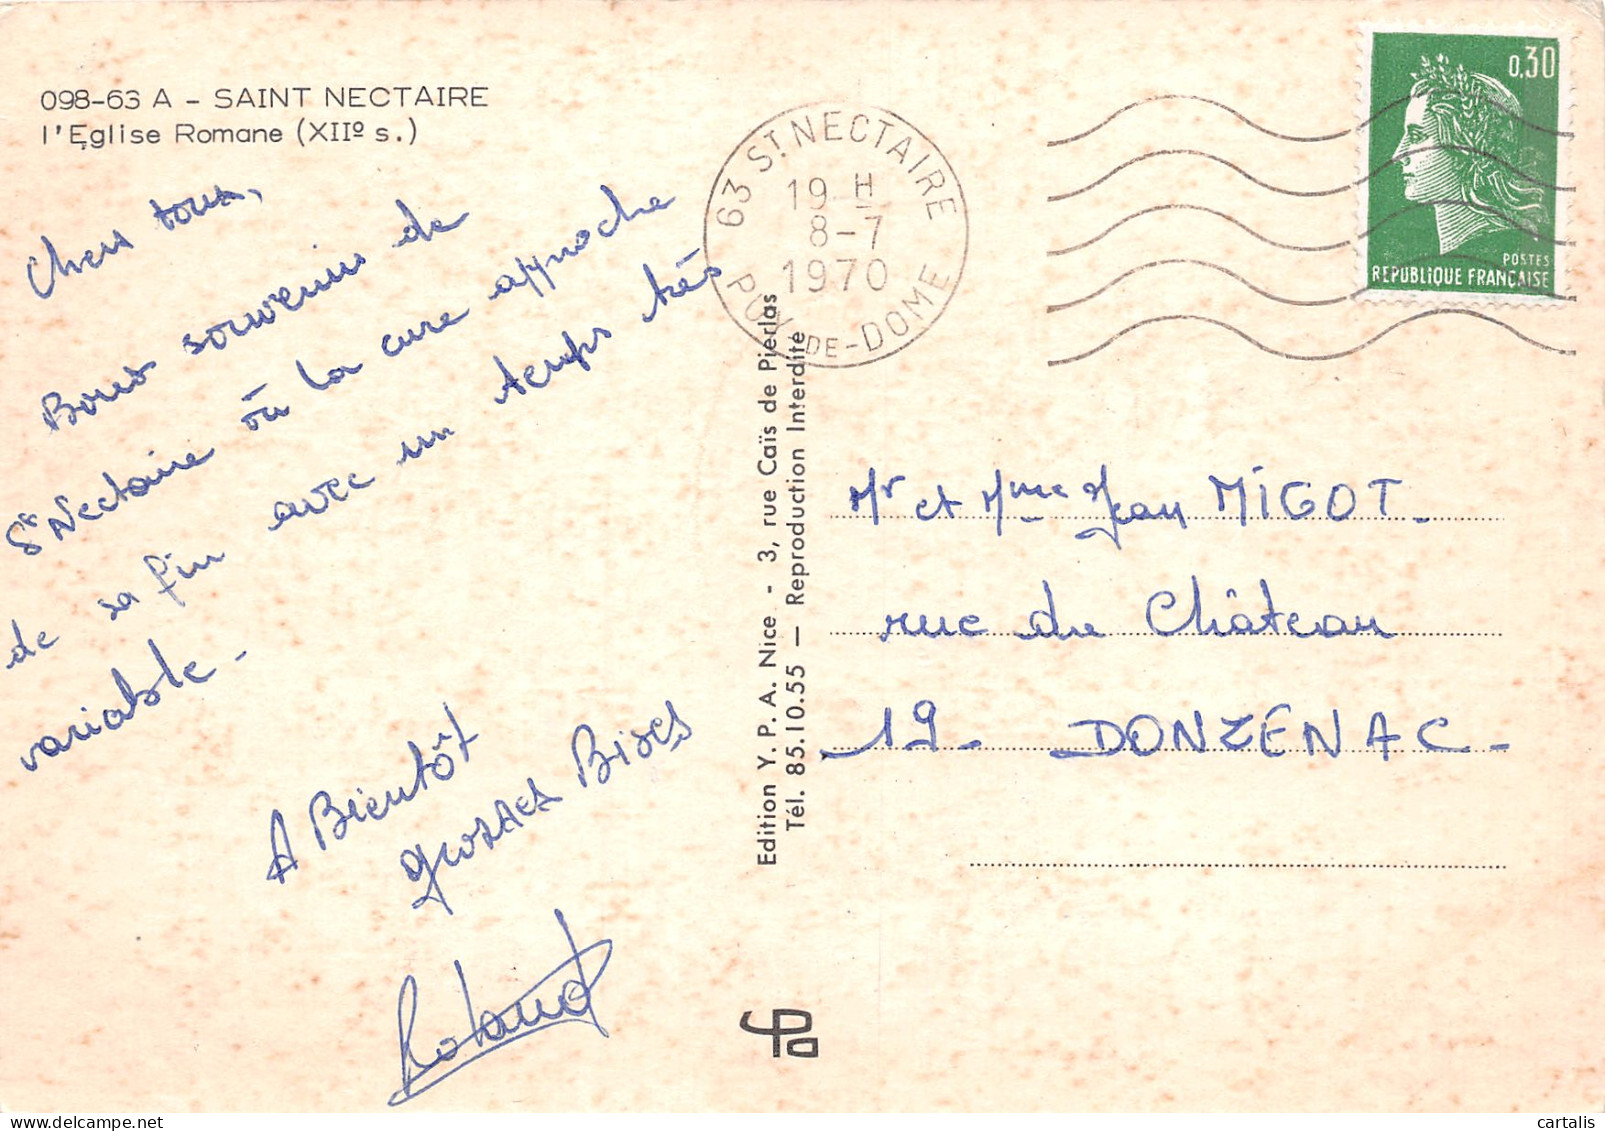 098-63 A - SAINT NECTAIRE
l'Eglise Romane (XIIº s.)
Chers tous,
Bons souvenirs de
St Nectaire où la cure approche
de sa fin avec un temps très
variable -
A Bientôt
Georges Bises
Roland
63 ST NECTAIRE
19 H
8-7
1970
PUY-DE-DOME
0,30
POSTES
REPUBLIQUE FRANÇAISE
Edition Y. P. A. Nice - 3, rue Caïs de Pierlas
Tél. 85.10.55 — Reproduction Interdite
Mr et Mme Jean MIGOT.
rue du Château
19 - DONZENAC -
cartalis